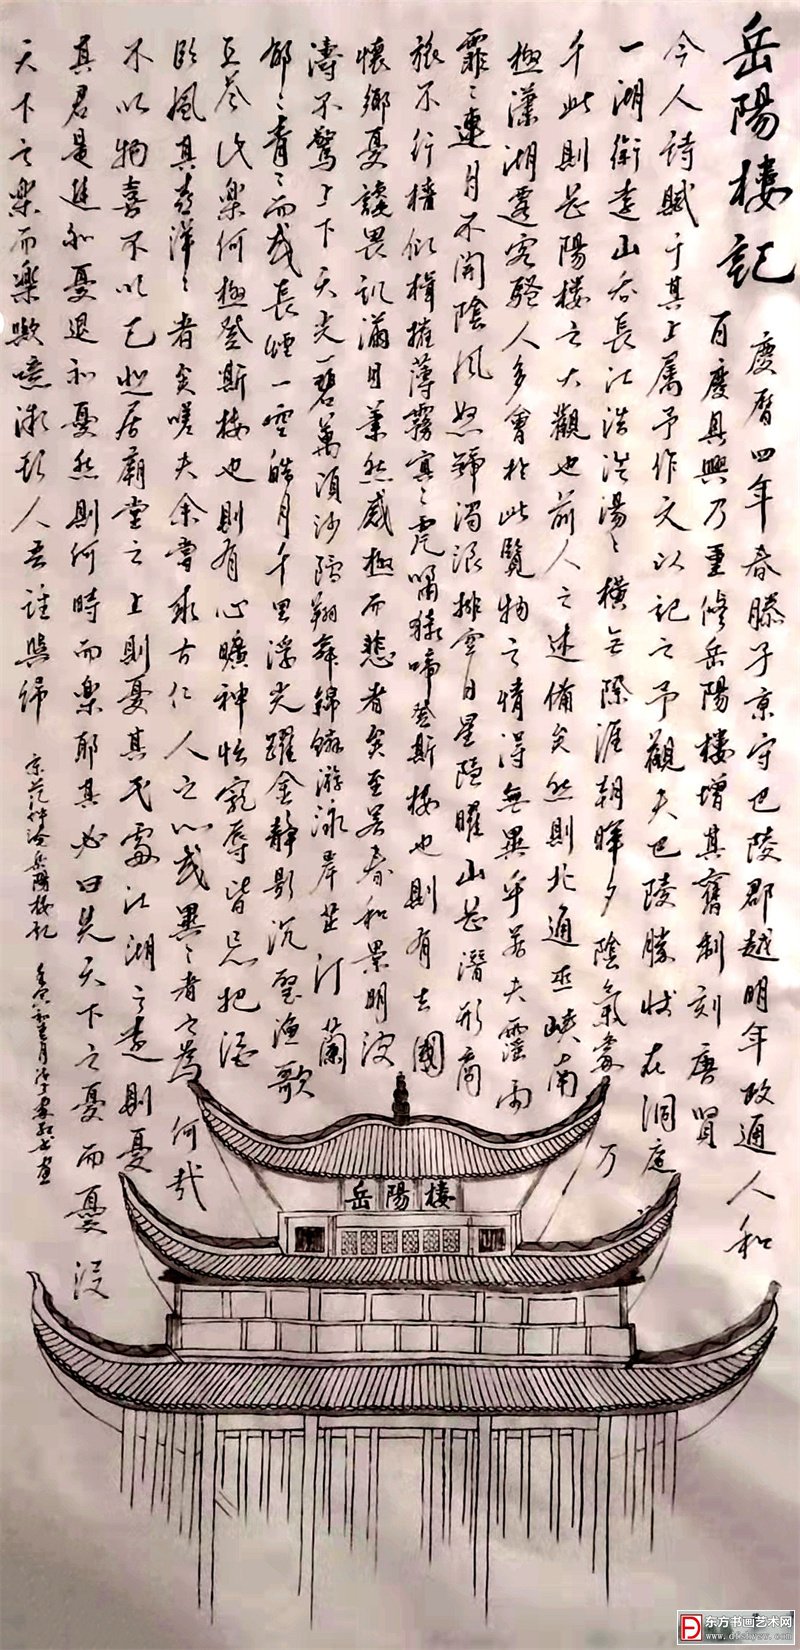 岳陽樓記
慶曆四年春滕子京守巴陵郡越明年政通人和
百廢具興乃重修岳陽樓增其舊制刻唐賢
今人詩賦于其上屬予作文以記之予觀夫巴陵勝狀在洞庭
一湖銜遠山吞長江浩浩湯〻橫无際涯朝暉夕陰氣象万
千此則岳陽樓之大觀也前人之述備矣然則北通巫峽南
極瀟湘遷客騷人多會於此覽物之情得無異乎若夫霪雨
霏〻連月不開陰風怒號濁浪排空日星隱曜山岳潛形商
旅不行檣傾楫摧薄霧冥〻虎嘯猿啼登斯樓也則有去國
懷鄉憂讒畏譏滿目蕭然感極而悲者矣至若春和景明波
濤不驚上下天光一碧萬頃沙鷗翔舞錦鱗游泳岸芷汀蘭
郁〻青〻而或長煙一空皓月千里浮光躍金靜影沉璧漁歌
互答此樂何極登斯樓也則有心曠神怡寵辱皆忘把酒
臨風其喜洋〻者矣嗟夫余嘗求古仁人之心或異〻者之為何哉
不以物喜不以己悲居廟堂之上則憂其民處江湖之遠則憂
其君是進亦憂退亦憂然則何時而樂耶其必曰先天下之憂而憂後
天下之樂而樂歟噫微斯人吾誰與歸
宋范仲淹岳陽樓記
岳陽樓
东方书画艺术网